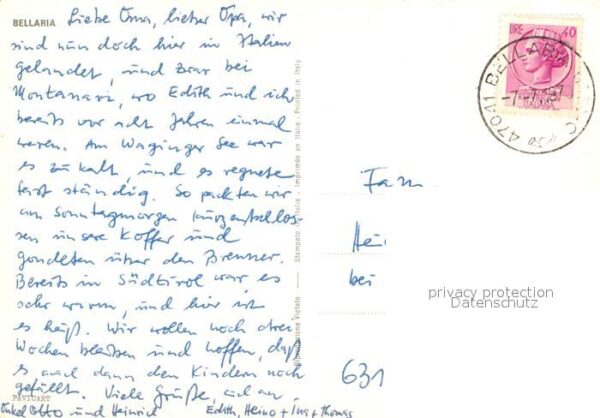 BELLARIA
Liebe Oma, lieber Opa, wir
sind nun doch hier in Italien
gelandet, und zwar bei
Montanari, wo Edith und ich
bereits vor acht Jahren einmal
waren. Am Waginger See war
es zu kalt, und es regnete
fast ständig. So packten wir
am Sonntagmorgen kurzentschlos-
sen unsere Koffer und
gondelten über den Brenner.
Bereits in Südtirol war es
sehr warm, und hier ist
es heiß. Wir wollen noch drei
Wochen bleiben und hoffen, daß
es auch dann den Kindern noch
gefällt. Viele Grüße, auch an
Onkel Otto und Heinrich
Edith, Heino + Ina + Thomas
PAVICART
Riproduzione Vietata - Stampato in Italia - Imprimée en Italie - Printed in Italy
LIRE 40
ITALIANA
47011 BELLARIA
Fam.
Hei
bei
631
privacy protection
Datenschutz